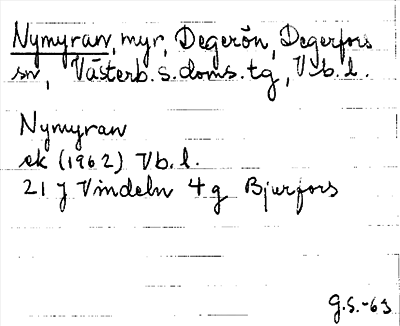 Nymyran, myr, Degerön, Degerfors
sn, Västerb. s. doms. tg, Vb. l.
Nymyran
ek (1962) Vb. l.
21 J Vindeln 4 g Bjurfors
G.S.-63